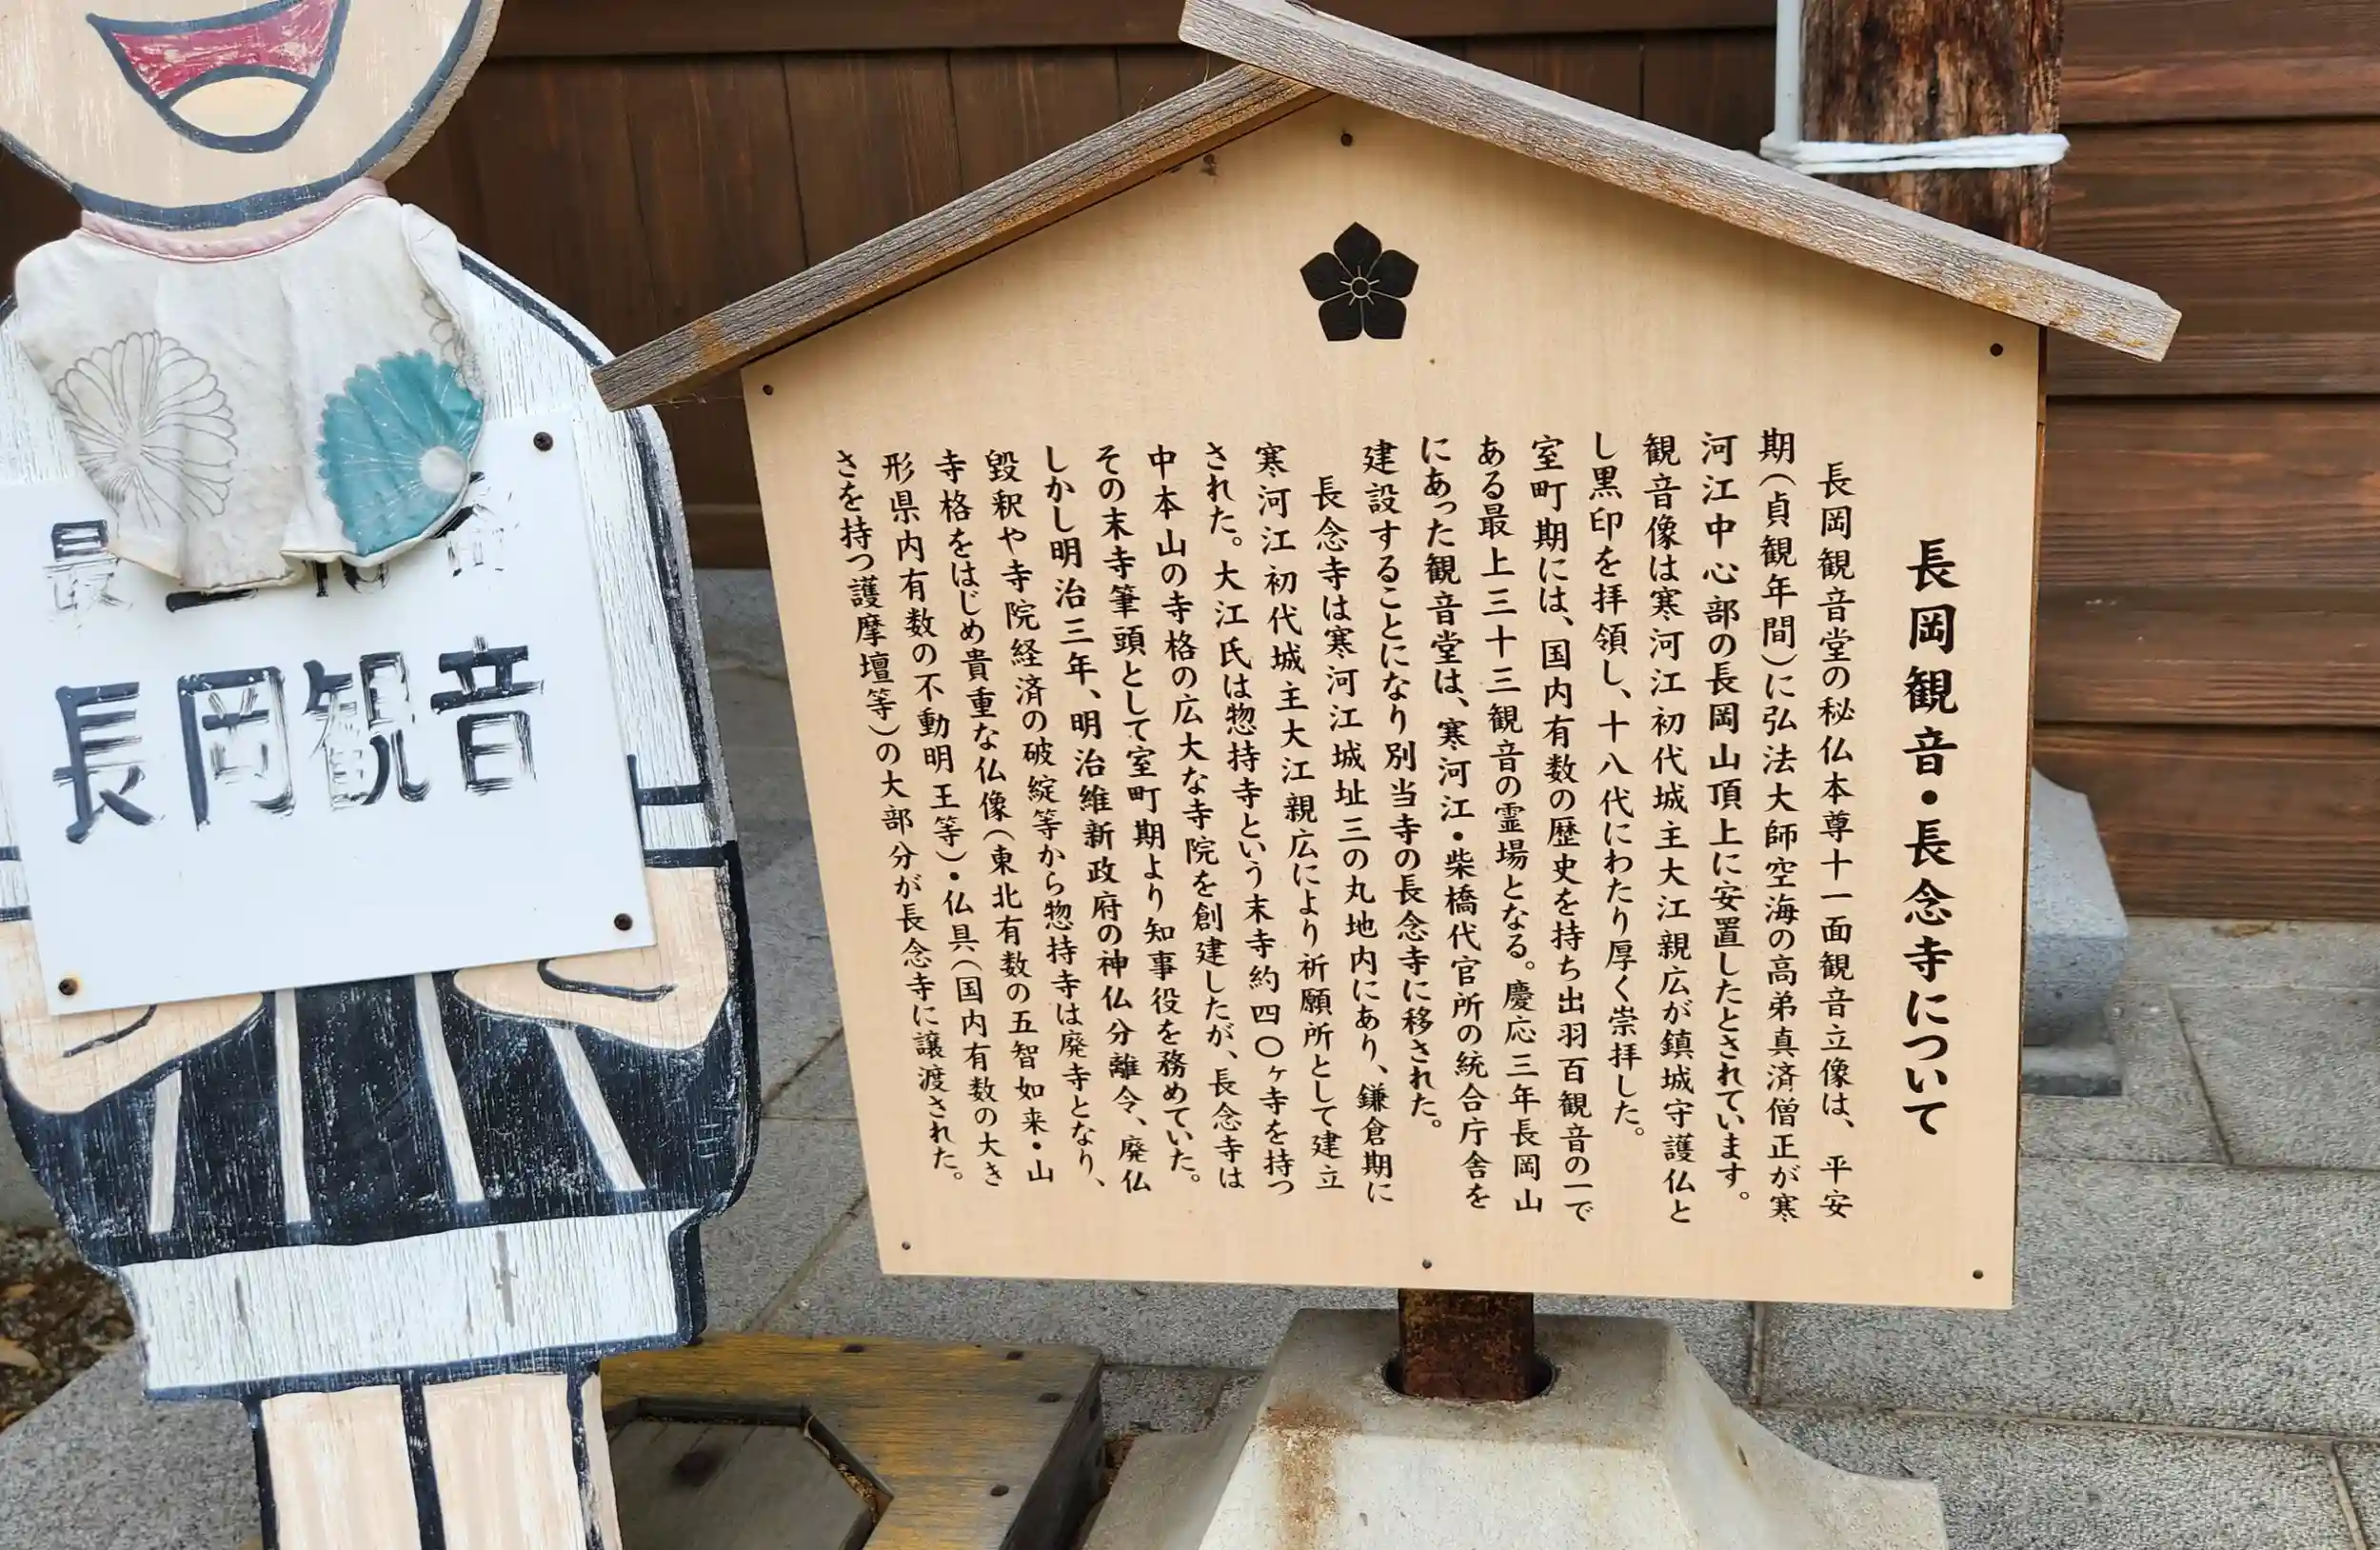 長岡観音・長念寺について
長岡観音堂の秘仏本尊十一面観音立像は、平安
期（貞観年間）に弘法大師空海の高弟真済僧正が寒
河江中心部の長岡山頂上に安置したとされています。
観音像は寒河江初代城主大江親広が鎮城守護仏と
し黒印を拝領し、十八代にわたり厚く崇拝した。
室町期には、国内有数の歴史を持ち出羽百観音の一で
ある最上三十三観音の霊場となる。慶応三年長岡山
にあった観音堂は、寒河江・柴橋代官所の統合庁舎を
建設することになり別当寺の長念寺に移された。
長念寺は寒河江城址三の丸地内にあり、鎌倉期に
寒河江初代城主大江親広により祈願所として建立
された。大江氏は惣持寺という末寺約四〇ヶ寺を持つ
中本山の寺格の広大な寺院を創建したが、長念寺は
その末寺筆頭として室町期より知事役を務めていた。
しかし明治三年、明治維新政府の神仏分離令、廃仏
毀釈や寺院経済の破綻等から惣持寺は廃寺となり、
寺格をはじめ貴重な仏像（東北有数の五智如来・山
形県内有数の不動明王等）・仏具（国内有数の大き
さを持つ護摩壇等）の大部分が長念寺に譲渡された。
最
長岡観音